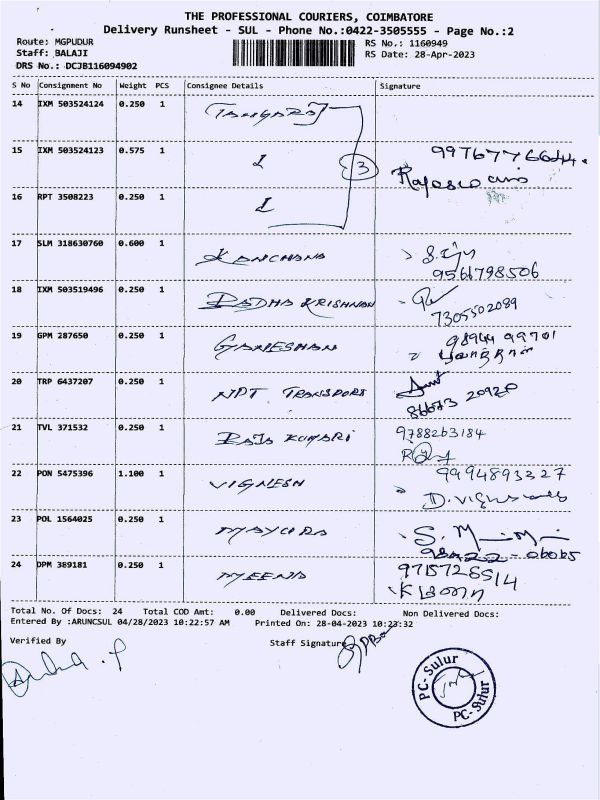 THE PROFESSIONAL COURIERS, COIMBATORE
Delivery Runsheet - SUL - Phone No.:0422-3505555 - Page No.:2
Route: MGPUDUR
RS No.: 1160949
Staff: BALAJI
RS Date: 28-Apr-2023
DRS No.: DCJB116094902
S No Consignment No Weight PCS Consignee Details Signature
14 IXM 503524124 0.250 1
15 IXM 503524123 0.575 1 9976776644
3
16 RPT 3508223 0.250 1
17 SLM 318630760 0.600 1 KANCHANA
9566798506
18 IXM 503519496 0.250 1 RADHA KRISHNAN
7305502089
19 GPM 287650 0.250 1 GANESHAN 98944 99701
20 TRP 6437207 0.250 1 NPT TRANSPORT
86673 20920
21 TVL 371532 0.250 1 RAJA KUMARI 9788263184
22 PON 5475396 1.100 1 VIGNESH 9994893327
23 POL 1564025 0.250 1 MAYURA
24 DPM 389181 0.250 1 MEENA
Total No. Of Docs: 24 Total COD Amt: 0.00 Delivered Docs: Non Delivered Docs:
Entered By :ARUNCSUL 04/28/2023 10:22:57 AM Printed On: 28-04-2023 10:23:32
Verified By Staff Signature
PC- Sulur
PC- Sulur